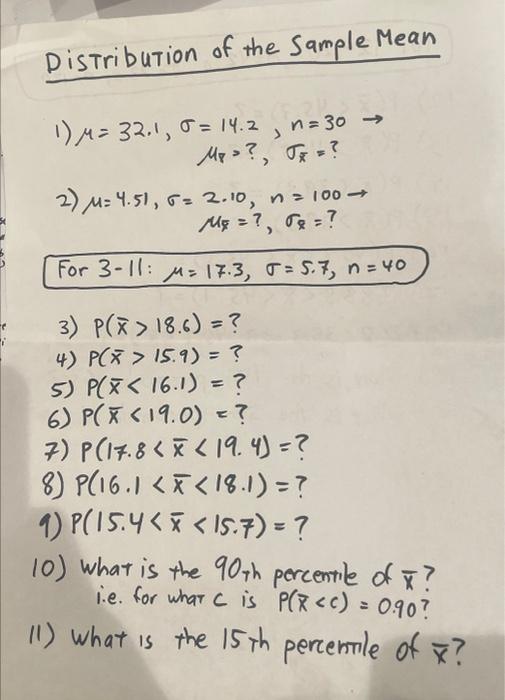 Distribution of the Sample Mean
1) μ = 32.1, σ = 14.2, n = 30 →
μx̄ = ?, σx̄ = ?
2) μ = 4.51, σ = 2.10, n = 100 →
μx̄ = ?, σx̄ = ?
For 3-11: μ = 17.3, σ = 5.7, n = 40
3) P(x̄ > 18.6) = ?
4) P(x̄ > 15.9) = ?
5) P(x̄ < 16.1) = ?
6) P(x̄ < 19.0) = ?
7) P(17.8 < x̄ < 19.4) = ?
8) P(16.1 < x̄ < 18.1) = ?
9) P(15.4 < x̄ < 15.7) = ?
10) What is the 90th percentile of x̄?
i.e. for what c is P(x̄ < c) = 0.90?
11) What is the 15th percentile of x̄?